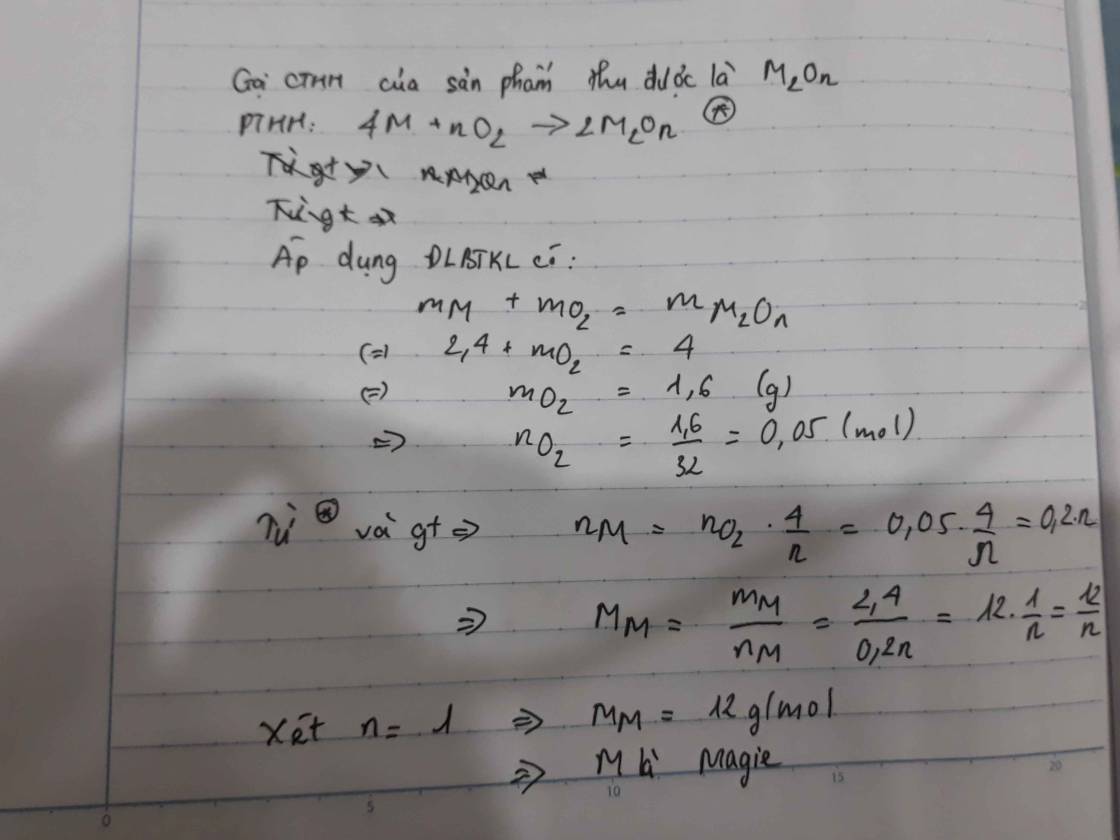 Gọi CTHH của sản phẩm thu được là M₂On
PTHH: 4M + nO₂ → 2M₂On (*)
Từ gt
Từ gt =>
Áp dụng ĐLBTKL có:
mM + mO₂ = mM₂On
(=) 2,4 + mO₂ = 4
(=) mO₂ = 1,6 (g)
=> nO₂ = 1,6/32 = 0,05 (mol)
Từ (*) và gt => nM = nO₂ . 4/n = 0,05 . 4/n = 0,2.n
=> MM = mM/nM = 2,4/0,2n = 12 . 1/n = 12/n
Xét n = 1 => MM = 12 g/mol
=> M là Magie
0 5 10 15 20